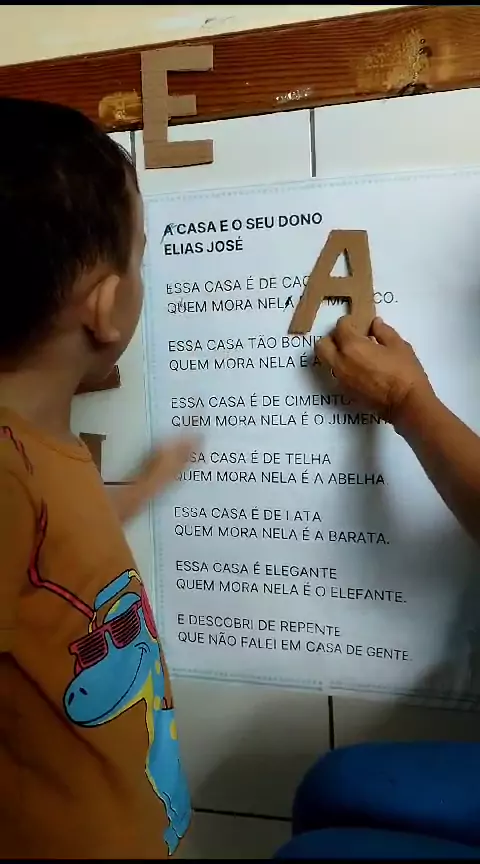 E
A
A CASA E O SEU DONO
ELIAS JOSÉ
ESSA CASA É DE
QUEM MORA NELA
ESSA CASA TÃO
QUEM MORA NELA É
ESSA CASA É DE CIMENTO
QUEM MORA NELA É O
ESSA CASA É DE TELHA
QUEM MORA NELA É A ABELHA.
ESSA CASA É DE LATA
QUEM MORA NELA É A BARATA.
ESSA CASA É ELEGANTE
QUEM MORA NELA É O ELEFANTE.
E DESCOBRI DE REPENTE
QUE NÃO FALEI EM CASA DE GENTE.